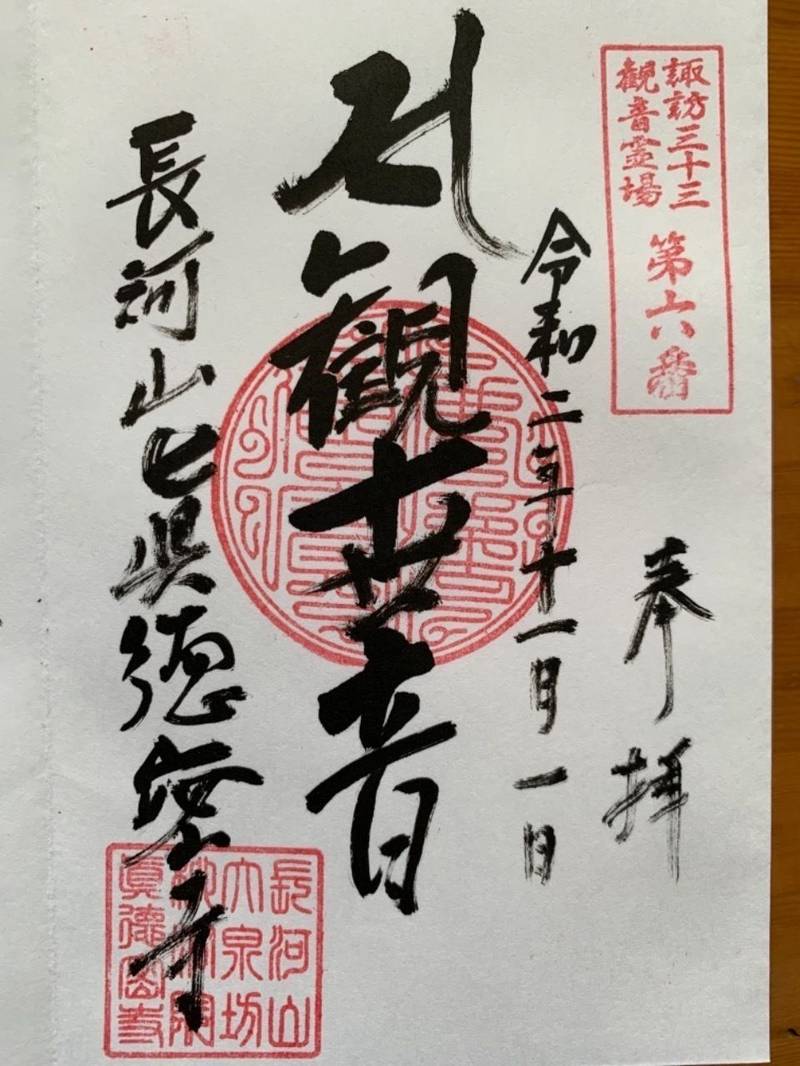 諏訪三十三
観音霊場
第六番
奉拝
令和二年十一月一日
観世音
長河山真徳密寺
長河山
大泉坊
眞徳密寺